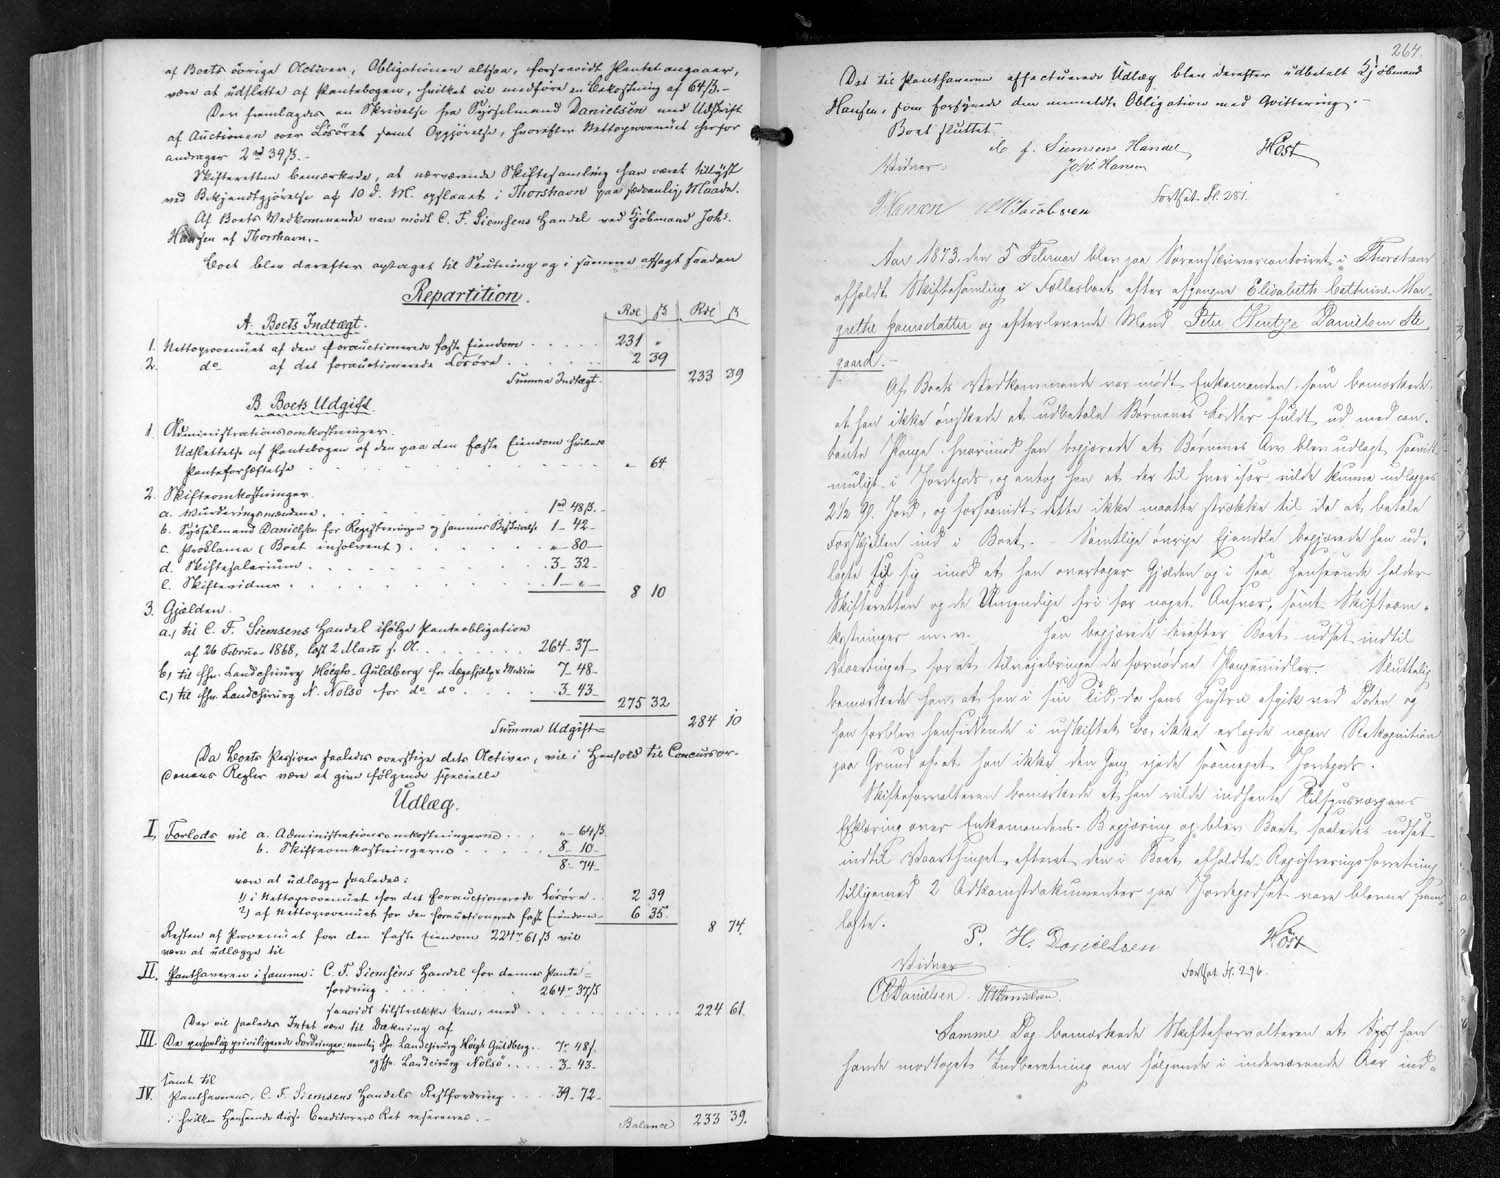 af Boets øvrige Activer, Obligationen altsaa, forsaavidt Pantet angaaer,
være at udslette af Pantebogen, hvilket vil medføre en Bekostning af 64 ß. –
Der fremlagdes en Skrivelse fra Sysselmand Danielsen med Udskrift
af Auctionen over Løsøret samt Opgjørelse, hvorefter Nettoprovenuet herfor
andrager 2 rd 39 ß. –
Skifteretten bemærkede, at nærværende Skiftesamling har været tillyst
ved Bekjendtgjørelse af 10 d. M. opslaaet i Thorshavn paa sædvanlig Maade.
Af Boets Vedkommende var mødt C. F. Siemsens Handel ved Kjøbmand Johs.
Hansen af Thorshavn. –
Boet blev derefter optaget til Slutning og i samme afsagt saadan
Repartition.
Rdl ß Rdl ß
A. Boets Indtægt.
1. Nettoprovenuet af den forauctionerede faste Eiendom . . . . 231 "
2. do af det forauctionerede Løsøre . . . . . 2 39
Summa Indtægt. 233 39
B Boets Udgift.
1. Administrationsomkostninger.
Udslettelse af Pantebogen af den paa den faste Eiendom hvilende
Panteforhæftelse . . . . . " 64
2. Skifteomkostninger.
a. Vurderingsmændene . . . . 1 rd 48 ß.
b. Sysselmand Danielsen for Registreringen og sammes Beskrivelse 1 – 42 –
c. Proklama (Boet insolvent) . . . . " – 80 –
d. Skiftesalarium . . . . 3 – 32 –
e. Skiftevidner . . . . 1 – " –
8 10
3. Gjælden.
a.) til C. F. Siemsens Handel ifølge Panteobligation
af 26 Februar 1868, læst 2 Marts s. A. . . . . 264 – 37 –
b.) til Hr. Landchirurg Høegh-Guldberg for Lægehjælp & Medicin 7 – 48 –
c.) til Hr. Landchirurg N. Nolsø for do do . . . 3 – 43 –
275 32
Summa Udgift = 284 10
Da Boets Passiver saaledes overstige dets Activer, vil i Henhold til Concursor-
denens Regler være at give følgende specielle
Udlæg.
I. Forlods vil a. Administrationsomkostningerne . . " – 64 ß
b. Skifteomkostningerne . . . . 8 – 10 –
8 – 74 –
være at udlægge saaledes:
1) i Nettoprovenuet for det forauctionerede Løsøre . 2 39
2) af Nettoprovenuet for den forauctionerede faste Eiendom – 6 35.
8 74.
Resten af Provenuet for den faste Eiendom 224 rd 61 ß vil
være at udlægge til
II. Panthaveren i samme: C. F. Siemsens Handel for dennes Pante =
fordring . . . . 264 rd 37 ß
saavidt tilstrække kan, med . . . . . 224 61.
Der vil saaledes Intet være til Dækning af
III. De personlig priviligerede Fordringer: nemlig Hr. Landchirurg Høegh Guldberg . . 7 rd 48 ß.
og Hr. Landchirurg Nolsø . . . . 3 – 43 –
samt til
IV. Panthaveren, C. F. Siemsens Handels Restfordring . . . 39 – 72 –
i hvilken Henseende disse Creditorers Ret reserveres. –
Balance 233 39.
264.
Det til Panthaveren effectuerede Udlæg blev derefter udbetalt Kjøbmand
Hansen, som forsynede den anmeldte Obligation med Qvittering. –
Boet sluttet.
C. F. Siemsens Handel Høst
Joh. Hansen
Vidner
Hansen Jacobsen
Fortsat. Fl. 251.
Aar 1873 den 5 Februar blev paa Sorenskrivercontoiret i Thorshavn
afholdt Skiftesamling i Fællesboet efter afgangne Elisabeth Cathrine Mar-
grethe Hansdatter og efterlevende Mand Peter Hentze Danielsen Ste-
gaard. –
Af Boets Vedkommende var mødt Enkemanden, som bemærkede
at han ikke ønskede at udbetale Børnenes Lodder fuldt ud med con-
tante Penge, hvorimod han begjærede at Børnenes Arv blev udlagt, saavidt
muligt i Jordegods, og antog han at der til hver især vilde kunne udlægges
2 1/2 Gl. Jord, og forsaavidt dette ikke maatte strække til da at betale
Forskjellen ind i Boet. – Samtlige øvrige Eiendele begjærede han ud-
lagte til sig imod at han overtager Gjælden og i saa Henseende holder
Skifteretten og de Umyndige fri for noget Ansvar, samt Skifteom-
kostninger m. v. Han begjærede derefter Boet udsat indtil
Vaartinget for at tilveiebringe de fornødne Pengemidler. Sluttelig
bemærkede han, at han i sin Tid, da hans Hustru afgik ved Døden og
han forblev hensiddende i uskiftet Bo, ikke erlagde nogen Rekognition
paa Grund af at han ikke den Gang eiede saameget Jordegods.
Skifteforvalteren bemærkede at han vilde indhente Tilsynsværgens
Erklæring over Enkemandens Begjæring og blev Boet saaledes udsat
indtil Vaarthinget, efterat den i Boet afholdte Registreringsforretning
tilligemed 2 Adkomstdokumenter paa Jordegodset vare blevne frem-
lagte.
P. H. Danielsen Høst
Vidner
Danielsen. Danielsen.
Fortsat. Fl. 296.
Samme Dag bemærkede Skifteforvalteren at han
havde modtaget Indberetning om følgende i indeværende Aar ind-